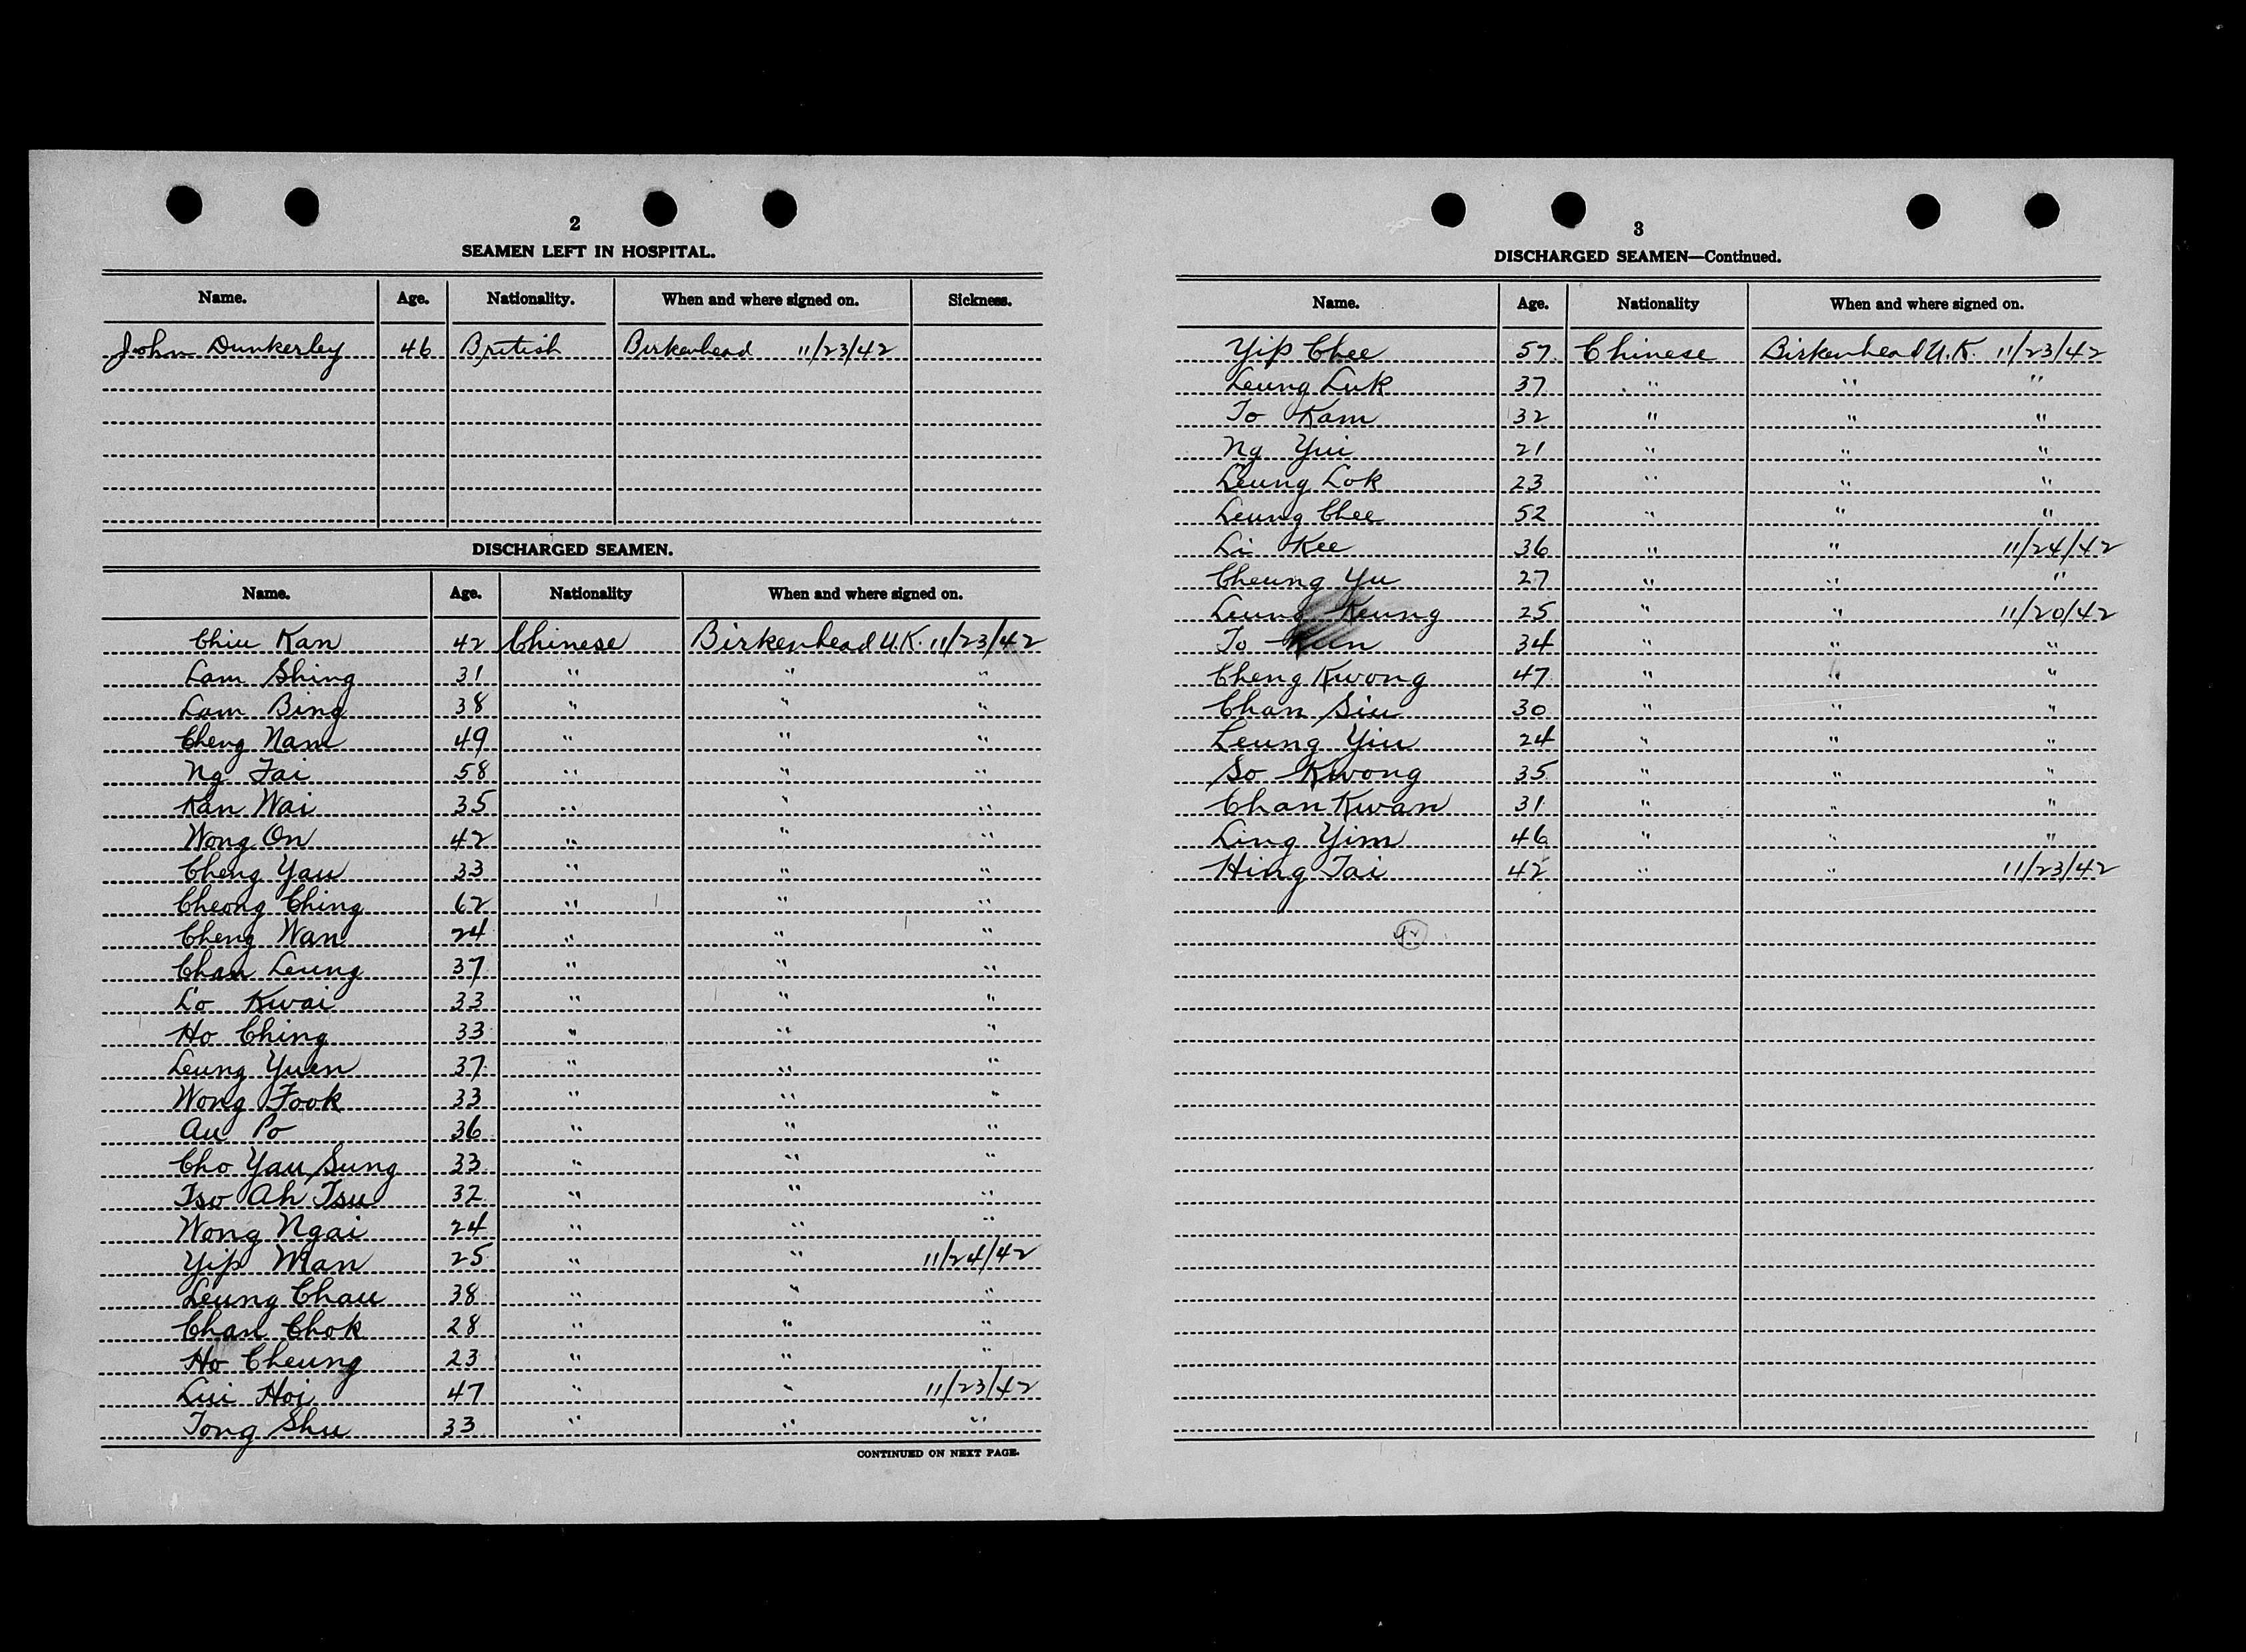 2
SEAMEN LEFT IN HOSPITAL.
Name. Age. Nationality. When and where signed on. Sickness.
John Dunkerley 46 British Birkenhead 11/23/42
DISCHARGED SEAMEN.
Name. Age. Nationality When and where signed on.
Chiu Kan 42 Chinese Birkenhead U.K. 11/23/42
Lam Shing 31 " " "
Lam Bing 38 " " "
Cheng Nam 49 " " "
Ng Fai 58 " " "
Kan Wai 35 " " "
Wong On 42 " " "
Cheng Yau 33 " " "
Cheong Ching 62 " " "
Cheng Wan 24 " " "
Chan Leung 37 " " "
Lo Kwai 33 " " "
Ho Ching 33 " " "
Leung Yuen 37 " " "
Wong Fook 33 " " "
Au Po 36 " " "
Cho Yau Sung 33 " " "
Tso Ah Tsu 32 " " "
Wong Ngai 24 " " "
Yip Man 25 " " 11/24/42
Leung Chau 38 " " "
Chan Chok 28 " " "
Ho Cheung 23 " " "
Lui Hoi 47 " " 11/23/42
Tong Shu 33 " " "
CONTINUED ON NEXT PAGE.
3
DISCHARGED SEAMEN—Continued.
Name. Age. Nationality When and where signed on.
Yip Chee 57 Chinese Birkenhead U.K. 11/23/42
Leung Luk 37 " " "
To Kam 32 " " "
Ng Yui 21 " " "
Leung Lok 23 " " "
Leung Chee 52 " " "
Li Kee 36 " " 11/24/42
Cheung Yu 27 " " "
Leung Keung 25 " " 11/20/42
To 34 " " "
Cheng Kwong 47 " " "
Chan Siu 30 " " "
Leung Yiu 24 " " "
So Kwong 35 " " "
Chan Kwan 31 " " "
Ling Yim 46 " " "
Hing Tai 42 " " 11/23/42
42